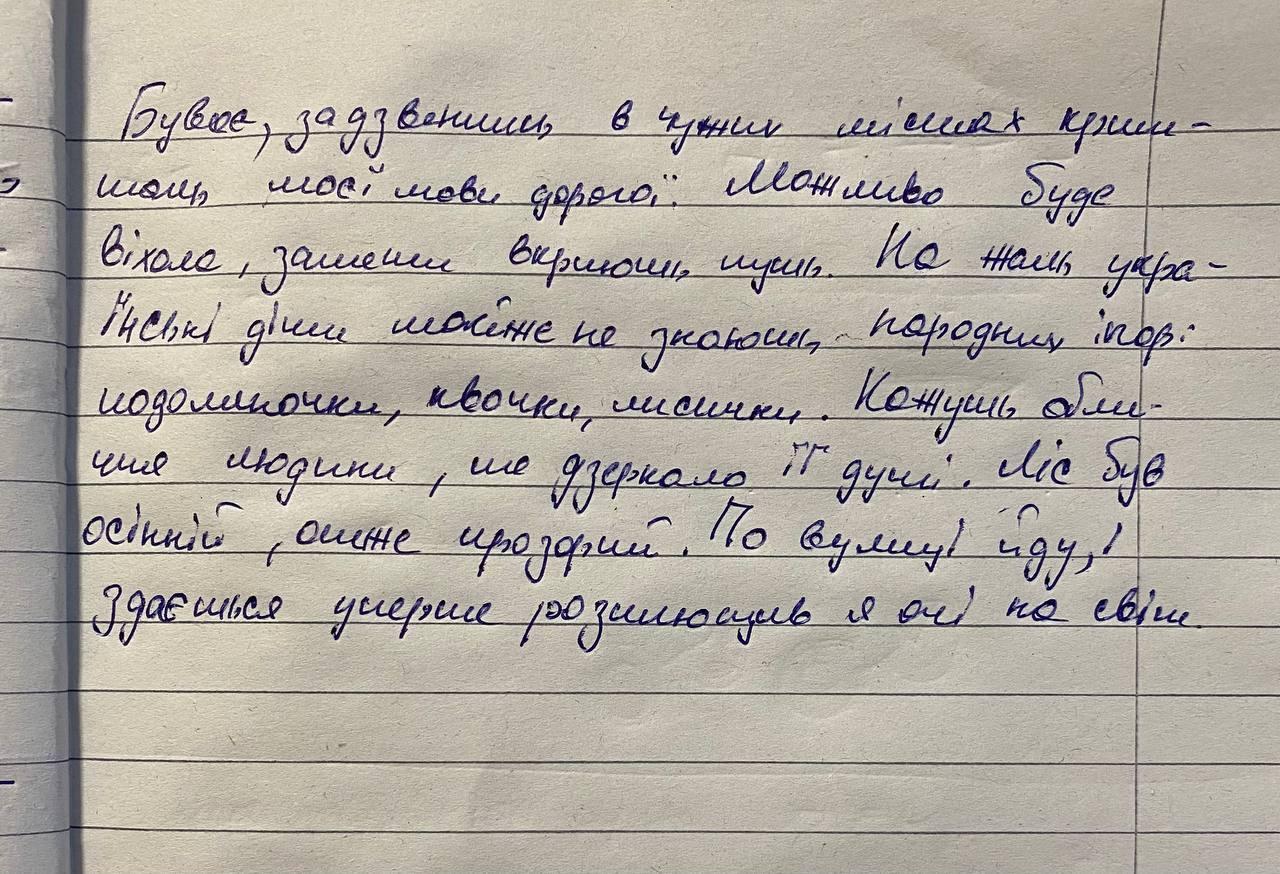 Буває, задзвенить в чужих містах криш-
таль моєї мови дорогої. Можливо буде
віхола, замети вкриють путь. На жаль укра-
їнські діти майже не знають народних ігор:
подоляночки, квочки, лисички. Кажуть обли-
ччя людини, це дзеркало її душі. Ліс був
осінній, отже прозорий. По вулиці йду, і
здається уперше розплющив я очі на світ.